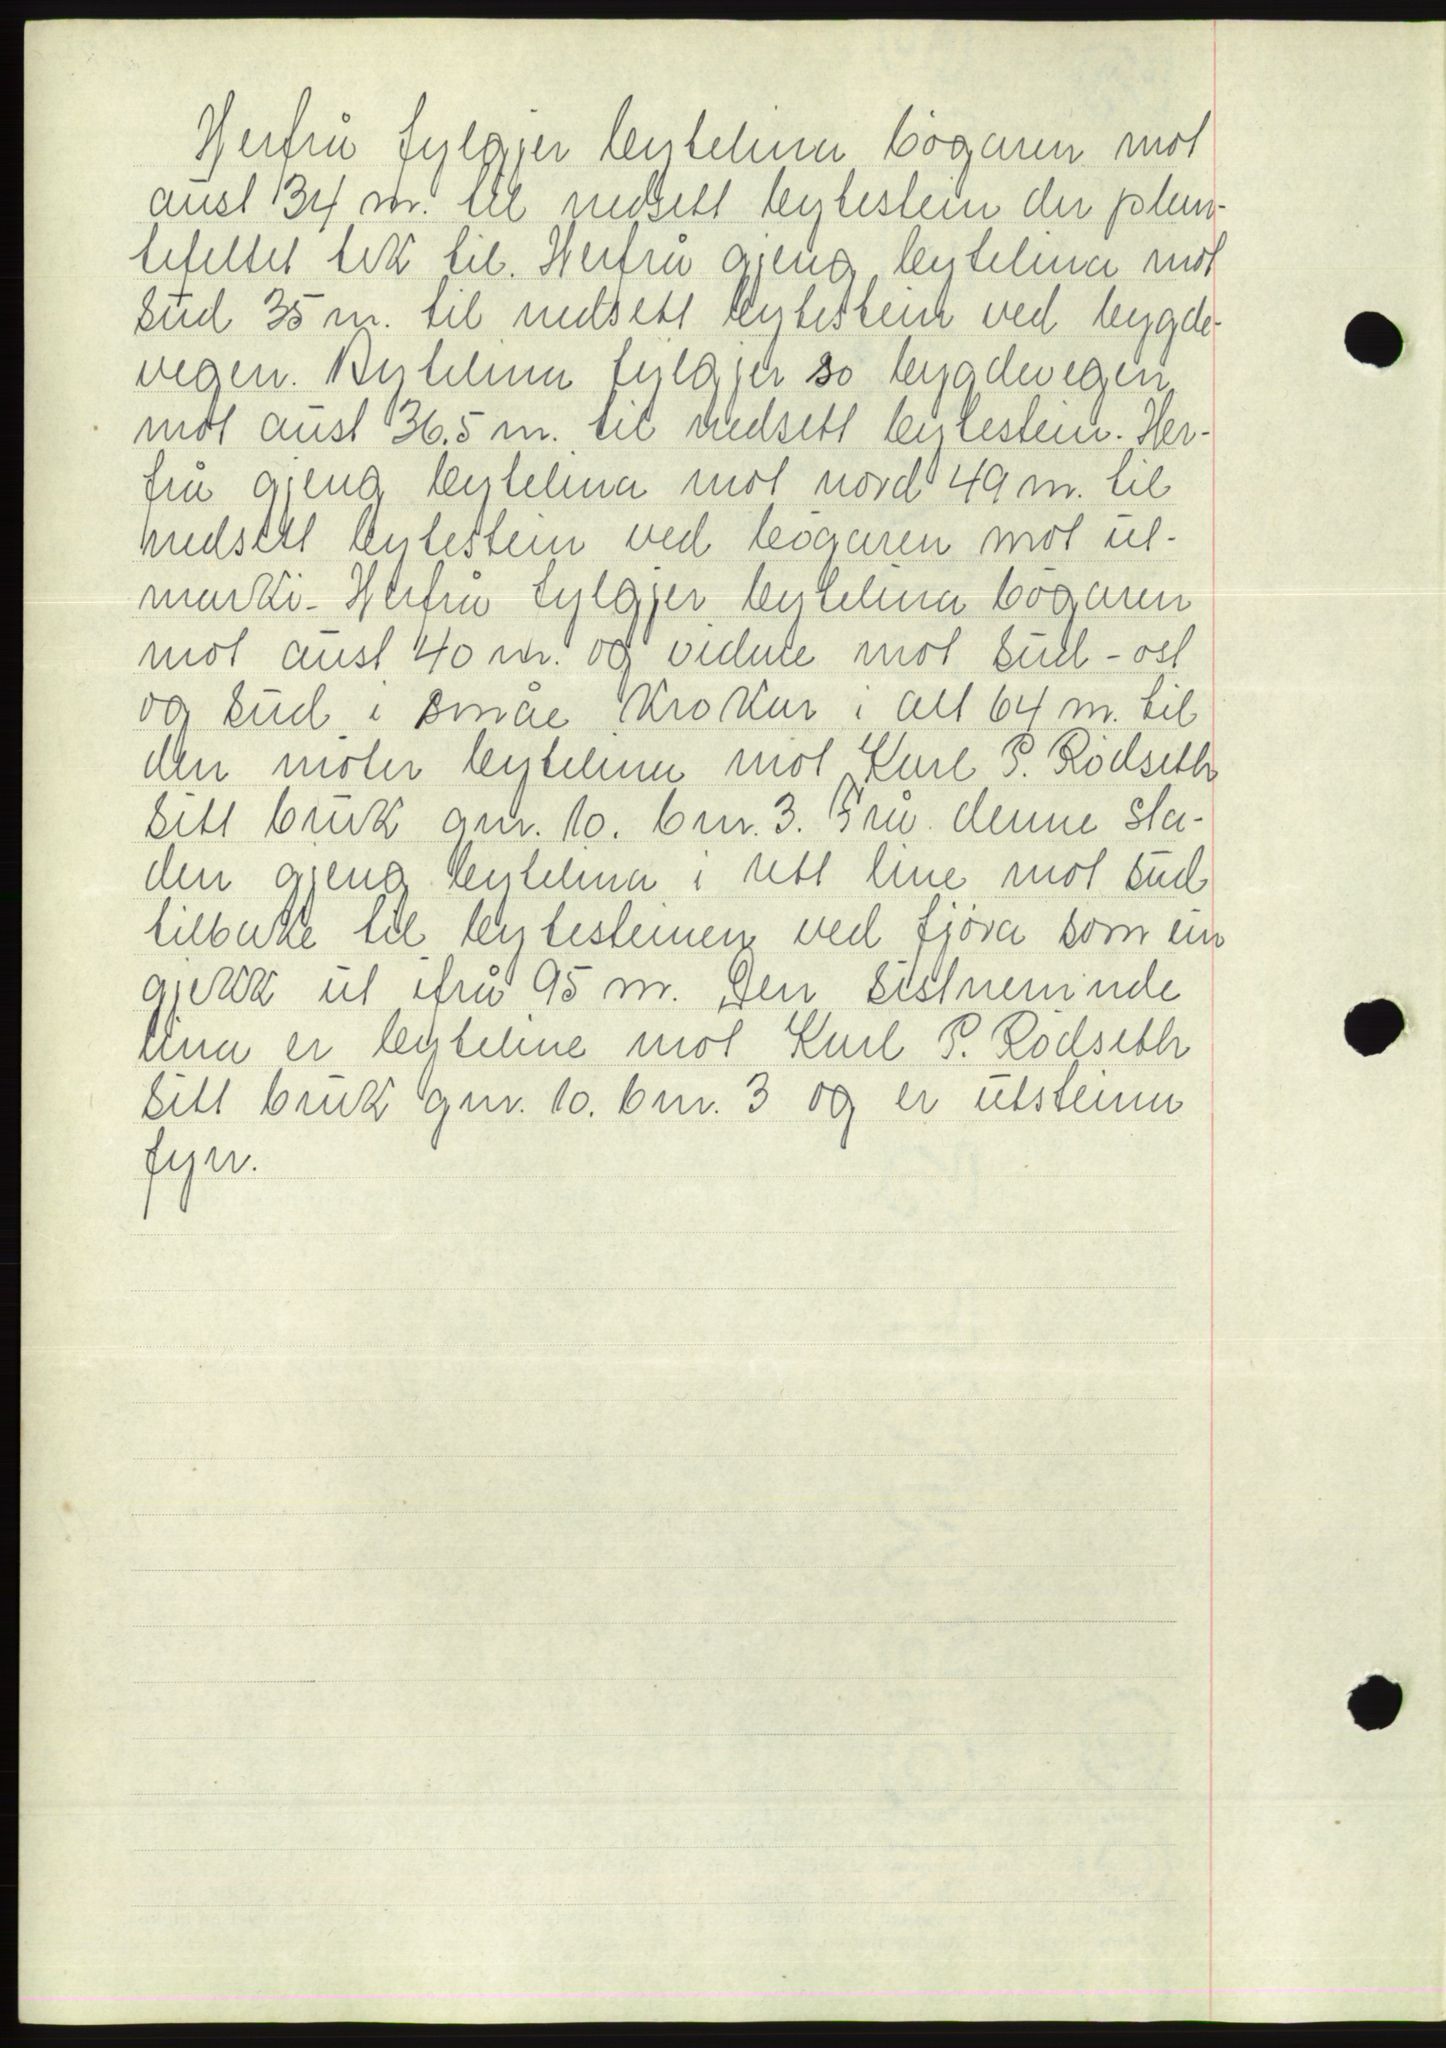 Herfrå fylgjer bytelina bögaren mot
aust 34 m. til nedsett bytestein der plan-
tefeltet tek til. Herfrå gjeng bytelina mot
sud 35 m. til nedsett bytestein ved bygde-
vegen. Bytelina fylgjer so bygdevegen
mot aust 36.5 m. til nedsett bytestein. Her-
frå gjeng bytelina mot nord 49 m. til
nedsett bytestein ved bögaren mot ut-
marki. Herfrå fylgjer bytelina bögaren
mot aust 40 m. og vidare mot sud-ost
og sud i småe krokar i alt 64 m. til
den möter bytelina mot Karl P. Rödseth
sitt bruk gnr. 10. bnr. 3. Frå denne sta-
den gjeng bytelina i rett line mot sud
tilbake til bytesteinen ved fjöra som ein
gjekk ut ifrå 95 m. Den sistnemnde
lina er byteline mot Karl P. Rödseth
sitt bruk gnr. 10. bnr. 3 og er utsteina
fyrr.